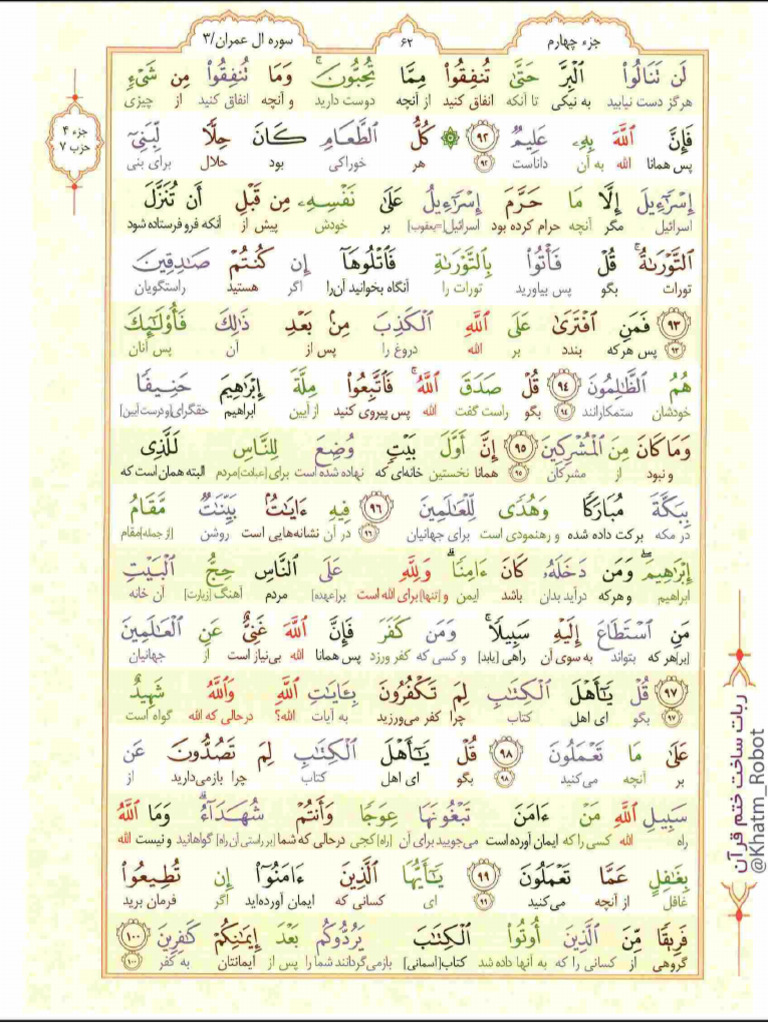 جزء چهارم
۶۲
سوره آل عمران/۳
لَن تَنَالُوا۟ ٱلْبِرَّ حَتَّىٰ تُنفِقُوا۟ مِمَّا تُحِبُّونَ ۚ وَمَا تُنفِقُوا۟ مِن شَىْءٍ
هرگز دست نیابید به نیکی تا آنکه انفاق کنید از آنچه دوست دارید و آنچه انفاق کنید از چیزی
جزء ۴
حزب ۷
فَإِنَّ ٱللَّهَ بِهِۦ عَلِيمٌ ۹۲ ۞ كُلُّ ٱلطَّعَامِ كَانَ حِلًّا لِّبَنِىٓ
پس همانا الله به آن داناست ۹۲ هر خوراکی بود حلال برای بنی
إِسْرَٰٓءِيلَ إِلَّا مَا حَرَّمَ إِسْرَٰٓءِيلُ عَلَىٰ نَفْسِهِۦ مِن قَبْلِ أَن تُنَزَّلَ
اسرائیل مگر آنچه حرام کرده بود اسرائیل[=یعقوب] بر خودش پیش از آنکه فرو فرستاده شود
ٱلتَّوْرَىٰةُ ۗ قُلْ فَأْتُوا۟ بِٱلتَّوْرَىٰةِ فَٱتْلُوهَآ إِن كُنتُمْ صَـٰدِقِينَ
تورات بگو پس بیاورید تورات را آنگاه بخوانید آن را اگر هستید راستگویان
۹۳ فَمَنِ ٱفْتَرَىٰ عَلَى ٱللَّهِ ٱلْكَذِبَ مِنۢ بَعْدِ ذَٰلِكَ فَأُو۟لَـٰٓئِكَ
۹۳ پس هرکه بندد بر الله دروغ را پس از آن پس آنان
هُمُ ٱلظَّـٰلِمُونَ ۹۴ قُلْ صَدَقَ ٱللَّهُ ۗ فَٱتَّبِعُوا۟ مِلَّةَ إِبْرَٰهِيمَ حَنِيفًا
خودشان ستمکارانند ۹۴ بگو راست گفت الله پس پیروی کنید از آیین ابراهیم حقگرای[و درست آیین]
وَمَا كَانَ مِنَ ٱلْمُشْرِكِينَ ۹۵ إِنَّ أَوَّلَ بَيْتٍ وُضِعَ لِلنَّاسِ لَلَّذِى
و نبود از مشرکان ۹۵ همانا نخستین خانه‌ای که نهاده شده است برای[عبادت]مردم البته همان است که
بِبَكَّةَ مُبَارَكًا وَهُدًى لِّلْعَـٰلَمِينَ ۹۶ فِيهِ ءَايَـٰتٌۢ بَيِّنَـٰتٌ مَّقَامُ
در مکه برکت داده شده و رهنمودی است برای جهانیان ۹۶ در آن نشانه‌هایی است روشن [از جمله]مقام
إِبْرَٰهِيمَ ۖ وَمَن دَخَلَهُۥ كَانَ ءَامِنًا ۗ وَلِلَّهِ عَلَى ٱلنَّاسِ حِجُّ ٱلْبَيْتِ
ابراهیم و هرکه درآید بدان باشد ایمن و [تنها] برای الله است بر[عهده] مردم آهنگ [زیارت] آن خانه
مَنِ ٱسْتَطَاعَ إِلَيْهِ سَبِيلًا ۚ وَمَن كَفَرَ فَإِنَّ ٱللَّهَ غَنِىٌّ عَنِ ٱلْعَـٰلَمِينَ
[بر]هر که بتواند به سوی آن راهی [یابد] و کسی که کفر ورزد پس همانا الله بی‌نیاز است از جهانیان
۹۷ قُلْ يَـٰٓأَهْلَ ٱلْكِتَـٰبِ لِمَ تَكْفُرُونَ بِـَٔايَـٰتِ ٱللَّهِ وَٱللَّهُ شَهِيدٌ
۹۷ بگو ای اهل کتاب چرا کفر می‌ورزید به آیات الله؟ درحالی که الله گواه است
عَلَىٰ مَا تَعْمَلُونَ ۹۸ قُلْ يَـٰٓأَهْلَ ٱلْكِتَـٰبِ لِمَ تَصُدُّونَ عَن
بر آنچه می‌کنید ۹۸ بگو ای اهل کتاب چرا بازمی‌دارید از
سَبِيلِ ٱللَّهِ مَنْ ءَامَنَ تَبْغُونَهَا عِوَجًا وَأَنتُمْ شُهَدَآءُ ۗ وَمَا ٱللَّهُ
راه الله کسی را که ایمان آورده است می‌جویید برای آن [راه] کجی درحالی که شما [بر راستی آن راه] گواهانید و نیست الله
بِغَـٰفِلٍ عَمَّا تَعْمَلُونَ ۹۹ يَـٰٓأَيُّهَا ٱلَّذِينَ ءَامَنُوٓا۟ إِن تُطِيعُوا۟
غافل از آنچه می‌کنید ۹۹ ای کسانی که ایمان آورده‌اید اگر فرمان برید
فَرِيقًا مِّنَ ٱلَّذِينَ أُوتُوا۟ ٱلْكِتَـٰبَ يَرُدُّوكُم بَعْدَ إِيمَـٰنِكُمْ كَـٰفِرِينَ ۱۰۰
گروهی از کسانی را که به آنها داده شد کتاب[آسمانی] بازمی‌گردانند شما را پس از ایمانتان به کفر ۱۰۰
ربات ساخت ختم قرآن
@Khatm_Robot